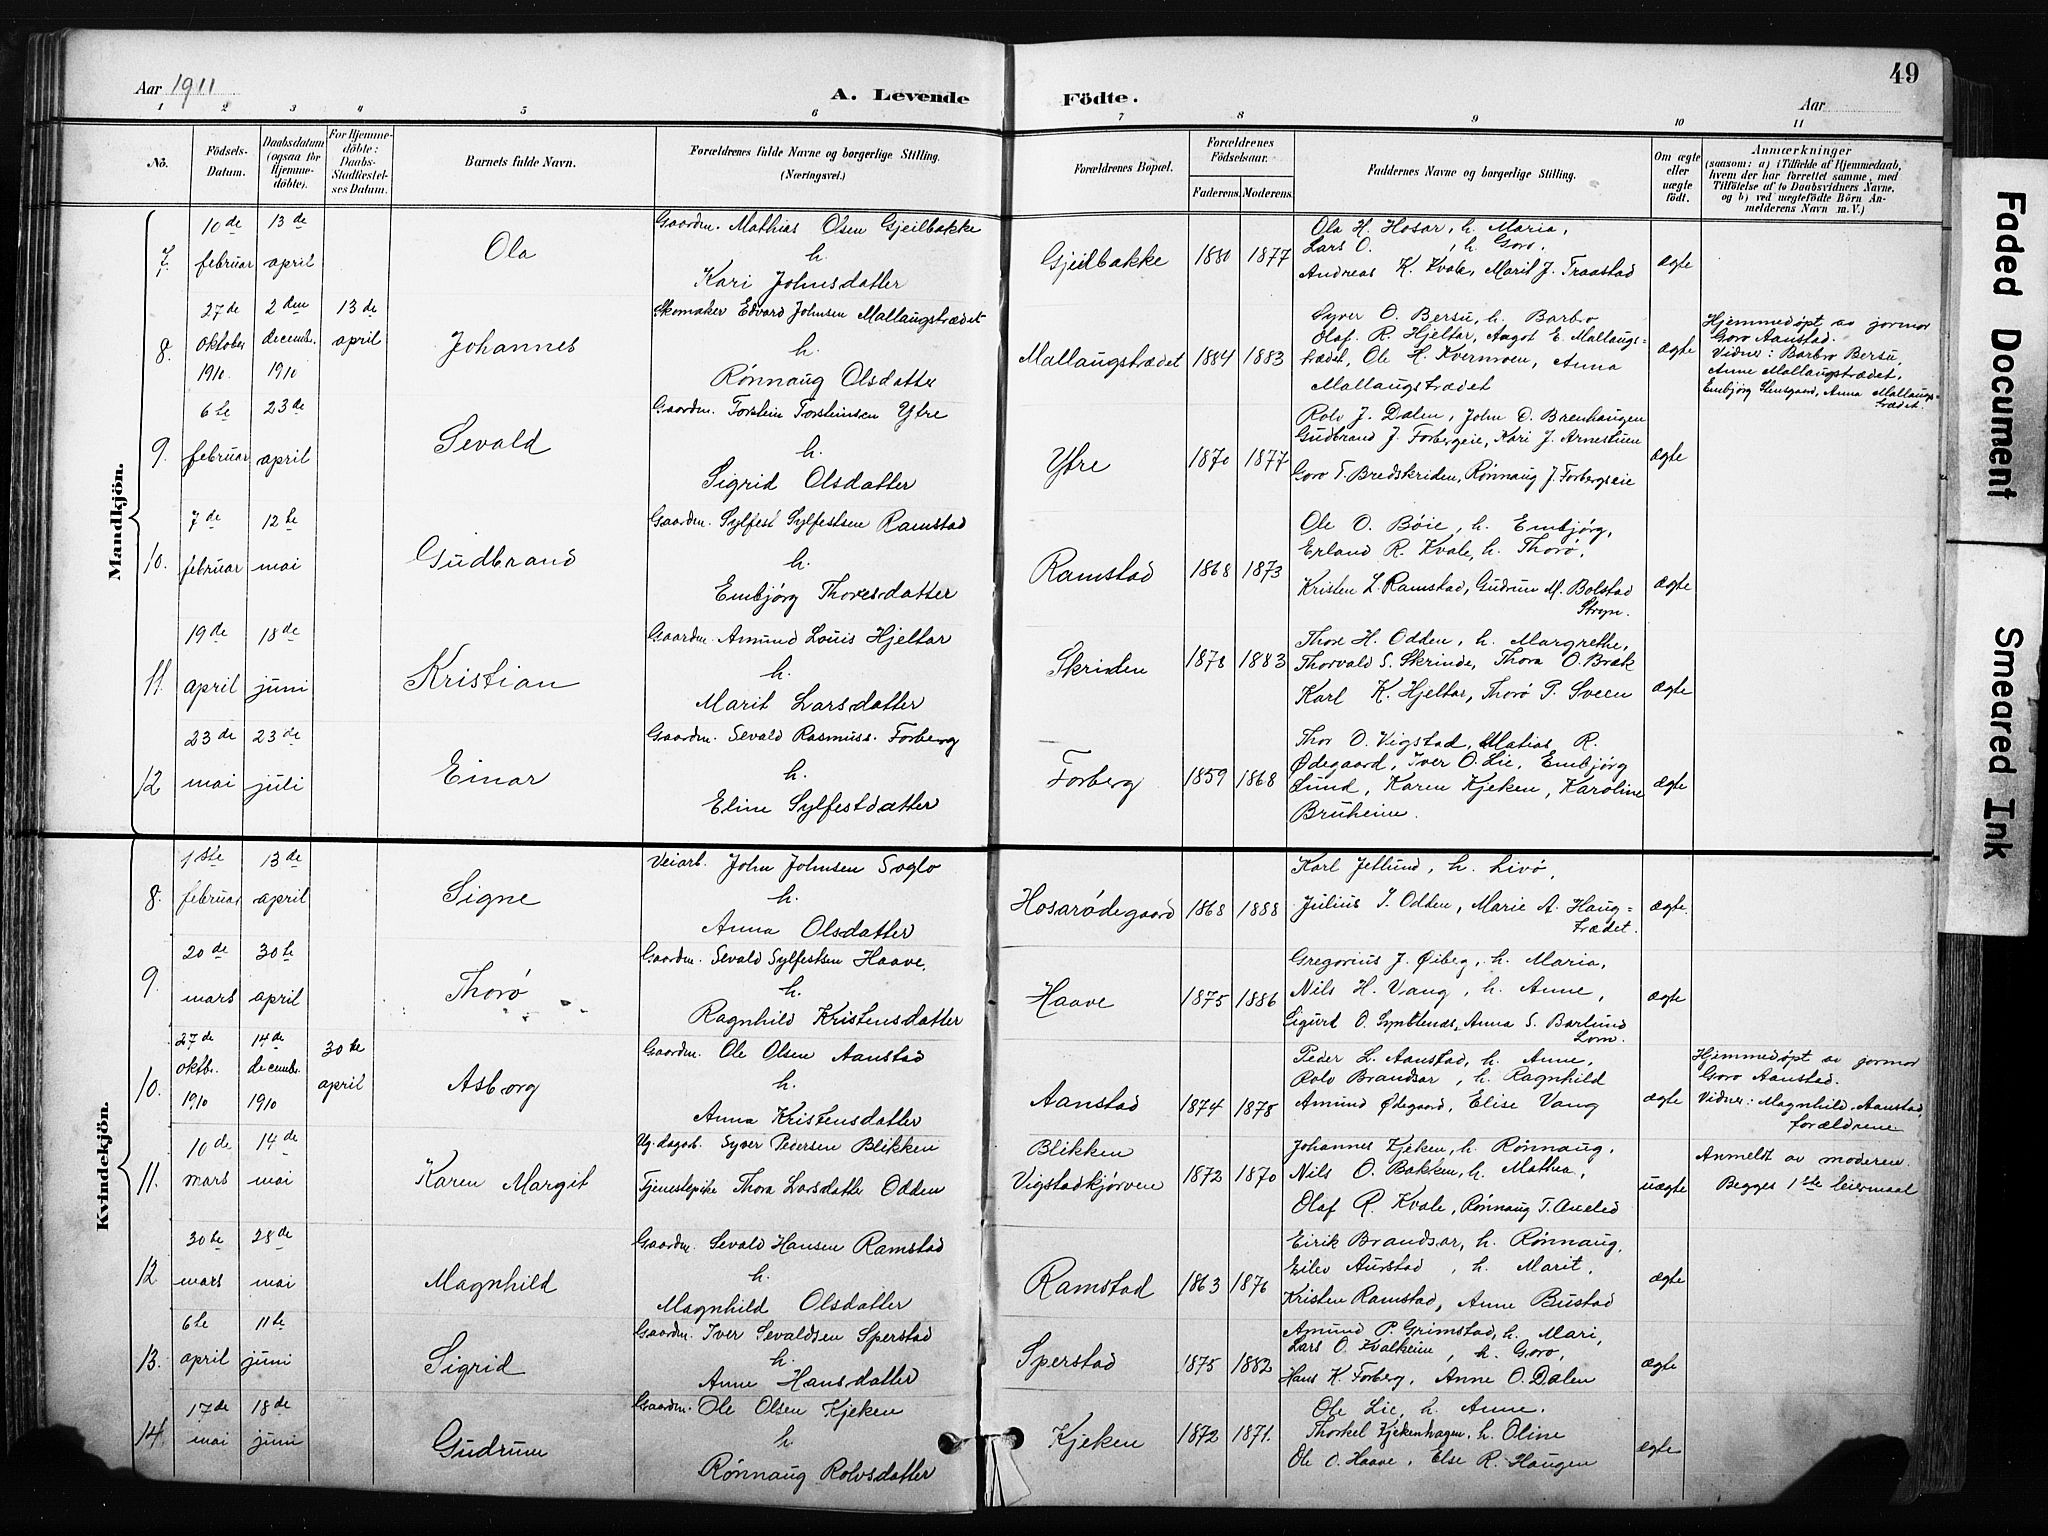 49
Aar 1911
A. Levende
Födte.
Aar
1 2 3 4 5 6 7 8 9 10 11
No.
Födsels-Datum.
Daabsdatum (ogsaa for Hjemme-döbte).
For Hjemme-döbte: Daabs-Stadfæstel-ses Datum.
Barnets fulde Navn.
Forældrenes fulde Navne og borgerlige Stilling. (Næringsvei.)
Forældrenes Bopæl.
Forældrenes Födselsaar.
Faderens. Moderens.
Faddernes Navne og borgerlige Stilling.
Om ægte eller uægte födt.
Anmærkninger
(saasom: a) i Tilfælde af Hjemmedaab, hvem der har forrettet samme, med Tilföielse af to Daabsvidners Navne, og b) ved uægtefödte Börn An-melderens Navn m. V.)
Mandkjön.
7.
10de februar
13de april
Ola
Gaardm. Mathias Olsen Gjeilbakke
h.
Kari Johnsdatter
Gjeilbakke
1880 1877
Ola H. Hosar, h. Maria,
Lars O. , h. Goro.
Andreas K. Kvale, Marit J. Traastad
ægte
8.
27de oktober 1910
2den decembr. 1910
13de april
Johannes
Skomaker Edvard Johnsen Mallaugstrædet
h.
Rønnaug Olsdatter
Mallaugstrædet
1884 1883
Syver O. Bersu, h. Barbro
Olaf R. Hjeltar, Aagot E. Mallaugs-
trædet, Ole H. Kvernvoen, Anna
Mallaugstrædet
ægte
Hjemmedøpt av jormor
Goro Aanstad.
Vidner: Barbro Bersu,
Anne Mallaugstrædet,
Embjörg Stensgaard, Anna Mallaugs-
trædet.
9.
6te februar
23de april
Sevald
Gaardm. Torstein Torsteinsen Ytre
h.
Sigrid Olsdatter
Ytre
1870 1877
Rolv J. Dalen, John O. Brenhaugen
Gudbrand J. Forbergeie, Kari J. Arnestuen
Goro T. Bredskriden, Rønnaug J. Forbergseie
ægte
10.
7de februar
12te mai
Gudbrand
Gaardm. Sylfest Sylfestsen Ramstad
h.
Embjörg Thoresdatter
Ramstad
1868 1873
Ole O. Böie, h. Embjörg,
Erland R. Kvale, h. Thorø,
Kristen L. Ramstad, Gudrun M. Bolstad
Stryn.
ægte
11.
19de april
18de juni
Kristian
Gaardm. Amund Louis Hjeltar
h.
Marit Larsdatter
Skriden
1878 1883
Thore H. Odden, h. Margrethe,
Thorvald S. Skrinde, Thora O. Bræk
Karl K. Hjeltar, Thorø P. Sveen
ægte
12
23de mai
23de juli
Einar
Gaardm. Sevald Rasmuss. Forberg
h.
Eline Sylfestdatter
Forberg
1859 1868
Thor O. Vigstad, Matias R.
Ødegaard, Iver O. Lie, Embjörg
Lund, Karen Kjeken, Karoline
Bruheim.
ægte
Kvindekjön.
8.
1ste februar
13de april
Signe
Veiarb. John Johnsen Soglo
h.
Anna Olsdatter
Hosarødegaard
1868 1888
Karl Jetlund, h. Livø,
Julius J. Odden, Marie A. Haug-
trædet.
ægte.
9.
20de mars
30te april
Thorø
Gaardm. Sevald Sylfestsen Haave,
h.
Ragnhild Kristensdatter
Haave
1875 1886
Gregorius J. Øiberg, h. Maria,
Nils H. Vang, h. Anne,
Sigurd O. Synstenæs, Anna S. Barlund
Lom.
ægte
10.
27de oktbr. 1910
14de decembr. 1910
30te april
Asborg
Gaardm. Ole Olsen Aanstad
h.
Anna Kristensdatter
Aanstad
1874 1878
Peder L. Aanstad, h. Anne,
Rolv Brandsar, h. Ragnhild
Amund Ødegaard, Elise Vang
ægte
Hjemmedøpt av jormor
Goro Aanstad.
Vidner: Magnhild Aanstad,
forældrene
11.
10de mars
14de mai
Karen Margit
Ug. dagarb. Syver Pedersen Blikken
Tjenestepike Thora Larsdatter Odden
Blikken
Vigstadkjørven
1872 1870
Johannes Kjeken, h. Rønnaug,
Nils O. Bakken, h. Mathea,
Olaf R. Kvale, Rønnaug T.
uægte
Anmeldt av moderen.
Begges 1ste leiermaal
12
30te mars
28de mai
Magnhild
Gaardm. Sevald Hansen Ramstad
h.
Magnhild Olsdatter
Ramstad
1863 1876
Eirik Brandsar, h. Rønnaug,
Eilev Aurstad, h. Marit,
Kristen Ramstad, Anne Bustad
ægte
13.
6te april
11te juni
Sigrid
Gaardm. Iver Sevaldsen Sperstad
h.
Anne Hansdatter
Sperstad
1875 1882
Amund P. Grimstad, h. Mari,
Lars O. Kvalheim, h. Goro,
Hans K. Forberg, Anne O. Dalen
ægte
14.
17de mai
18de juni
Gudrun
Gaardm. Ole Olsen Kjeken
h.
Rønnaug Rolvsdatter
Kjeken
1872 1871.
Ole Lie, h. Anne.
Thorkel Kjekenhagen, h. Oline
Ole O. Haave, Else R. Haugen
ægte
Faded Document
Smeared Ink